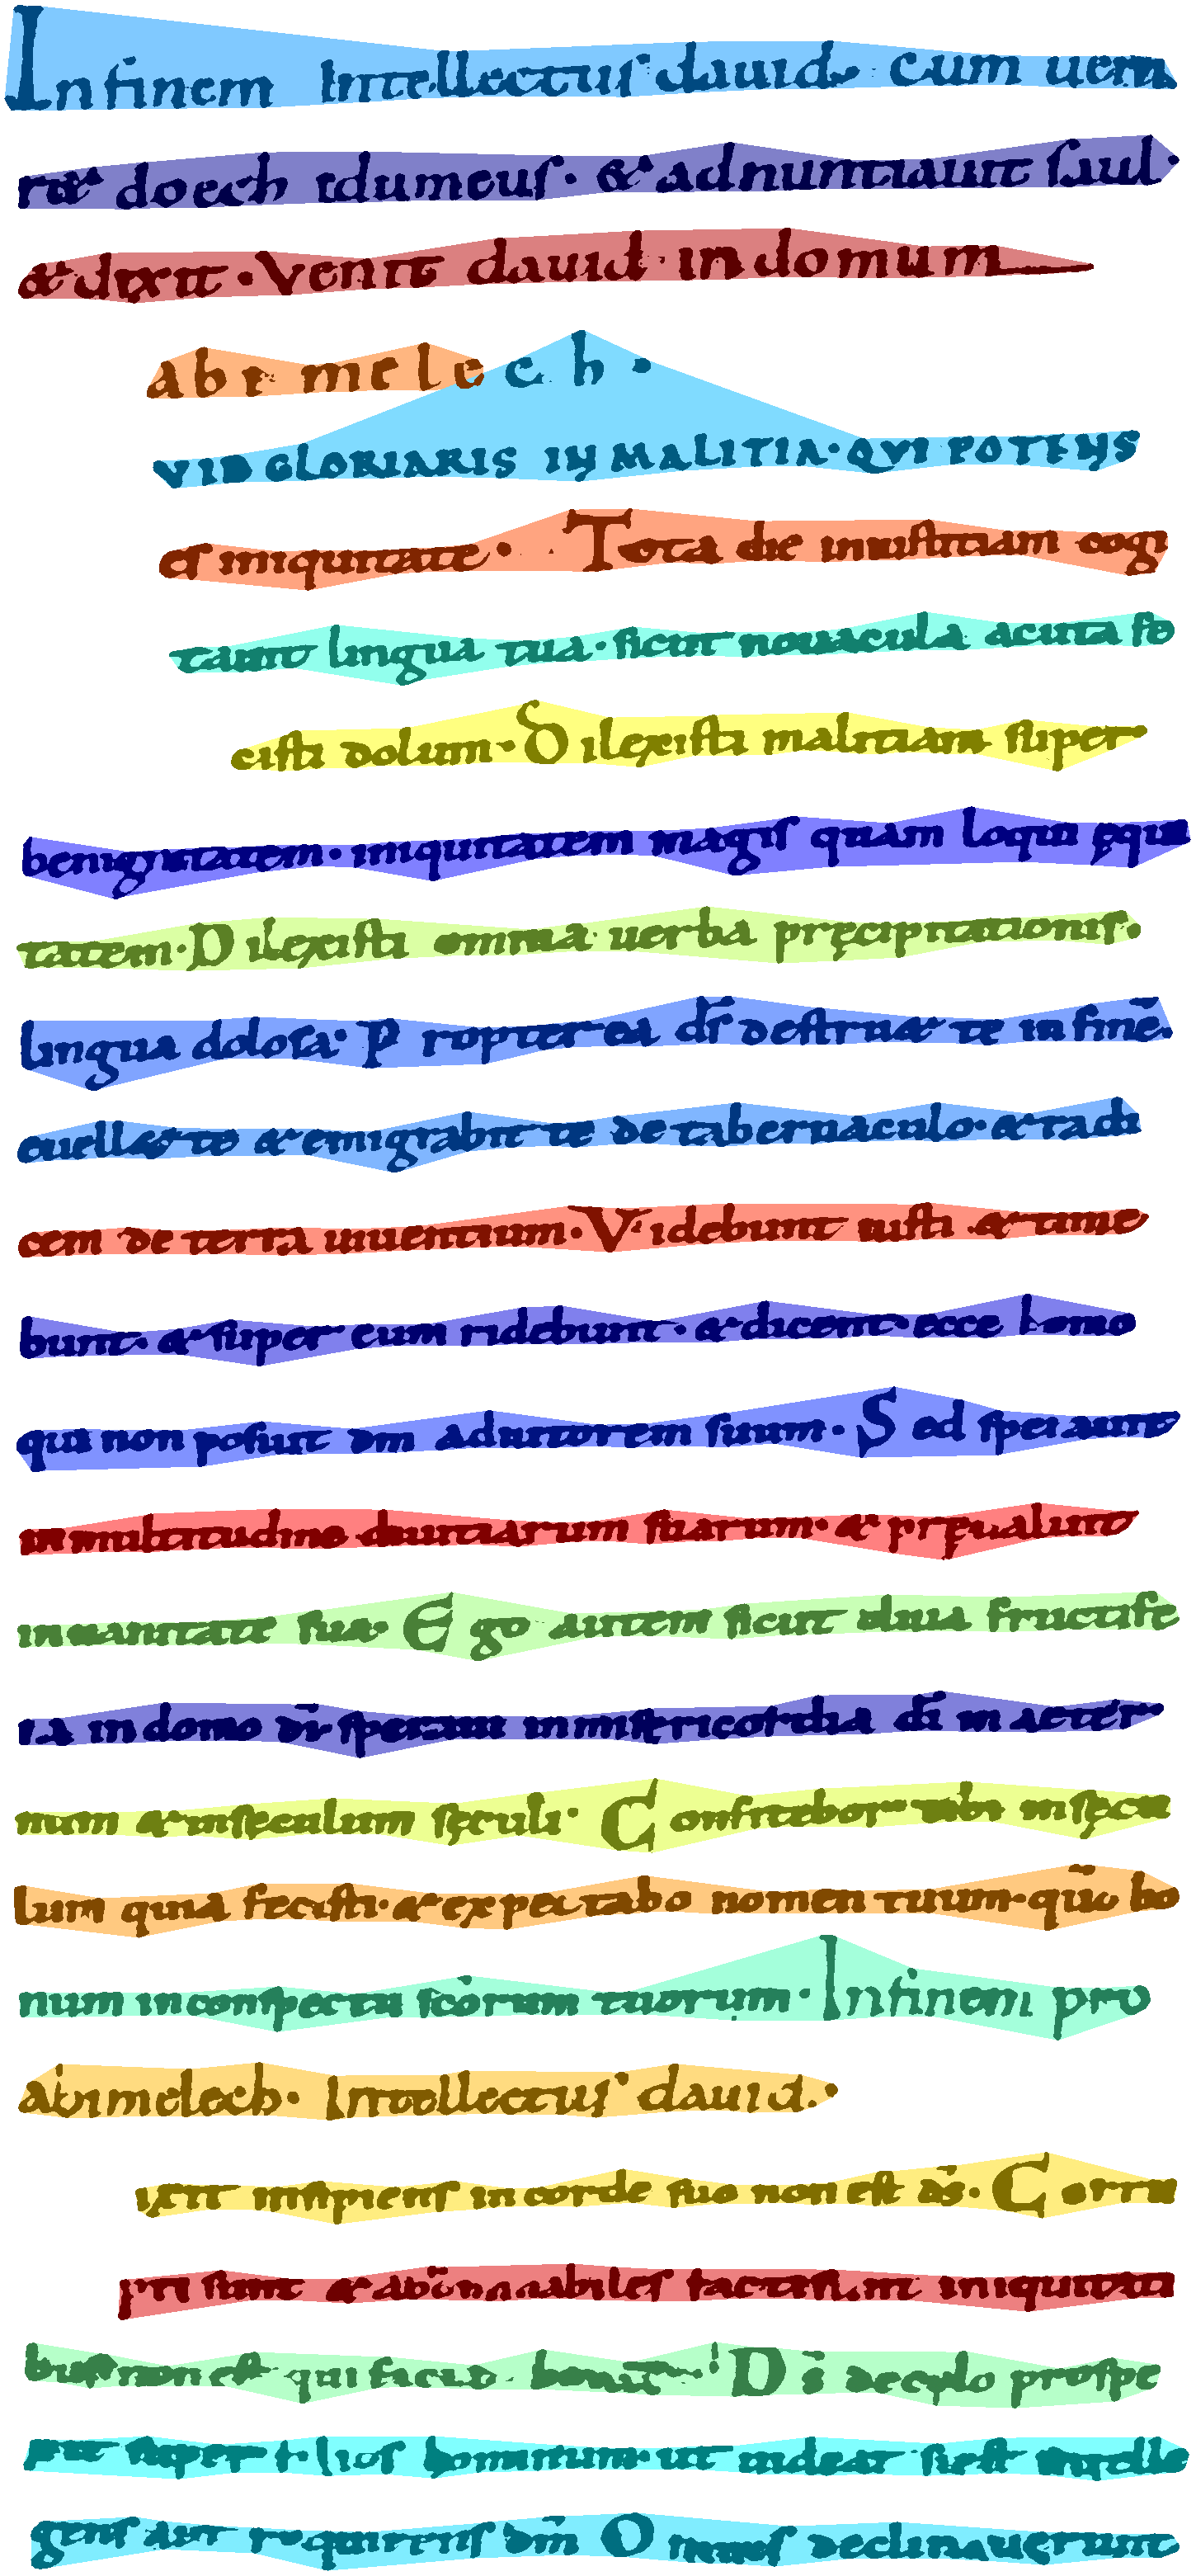 In finem Intellectus dauid. cum ueni
ret doech idumeus. & adnuntiauit saul.
& dixit. Venit dauid in domum
abimelech.
VID GLORIARIS IN MALITIA. QVI POTENS
es iniquitate. Tota die iniustitiam cogi
tauit lingua tua. sicut nouacula acuta fe
cisti dolum. Dilexisti malitiam super
benignitatem. iniquitatem magis quam loqui ęqui
tatem. Dilexisti omnia uerba pręcipitationis.
lingua dolosa. Propter ea ds̄ destruet te in finē.
euellet te & emigrabit te de tabernaculo. & radi
cem de terra uiuentium. Videbunt iusti & time
bunt. & super eum ridebunt. & dicent. ecce homo
qui non posuit dm adiutorem suum. Sed sperauit
in multitudine diuitiarum suarum. & pręualuit
in uanitate sua. Ego autem sicut oliua fructife
ra in domo dī speraui in misericordia dī in aeter
num & in sęculum sęculi. Confitebor tibi in sęcu
lum quia fecisti. & expectabo nomen tuum. qūo bo
num in conspectu scōrum tuorum. In finem pro
abimelech. Intellectus dauid.
ixit insipiens in corde suo non est ds̄. Corru
pti sunt & abōminabiles facti sunt in iniquitati
bus. non est qui faciat bonū. Ds̄ de cęlo prospe
xit super filios hominum. ut uideat si est intelle
gens aut requirens dm̄ Omnes declinauerunt